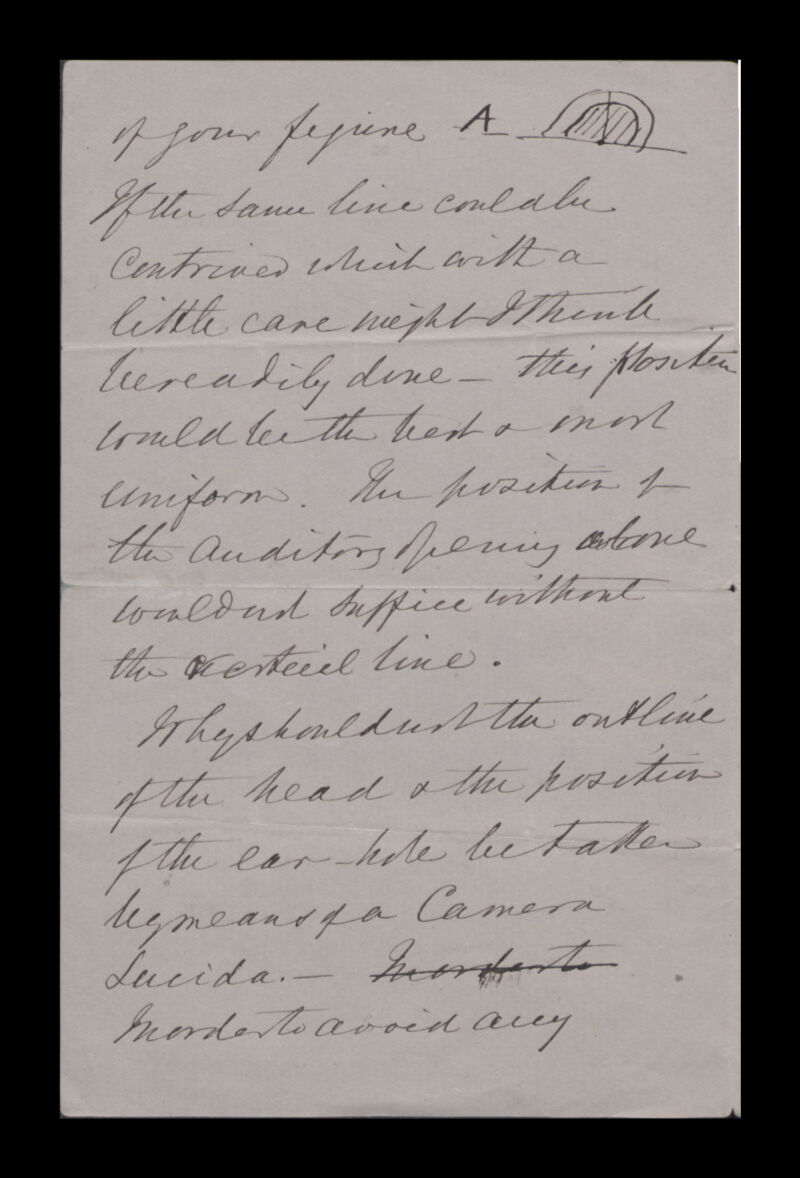 of your figure A
If the same line could be
contrived which with a
little care might I think
be readily done – this position
would be the best & most
uniform. The position of
the Auditory opening alone
would not suffice without
the vertical line.
Why should not the outline
of the head & the position
of the ear-hole be taken
by means of a Camera
Lucida. – In order to
In order to avoid any